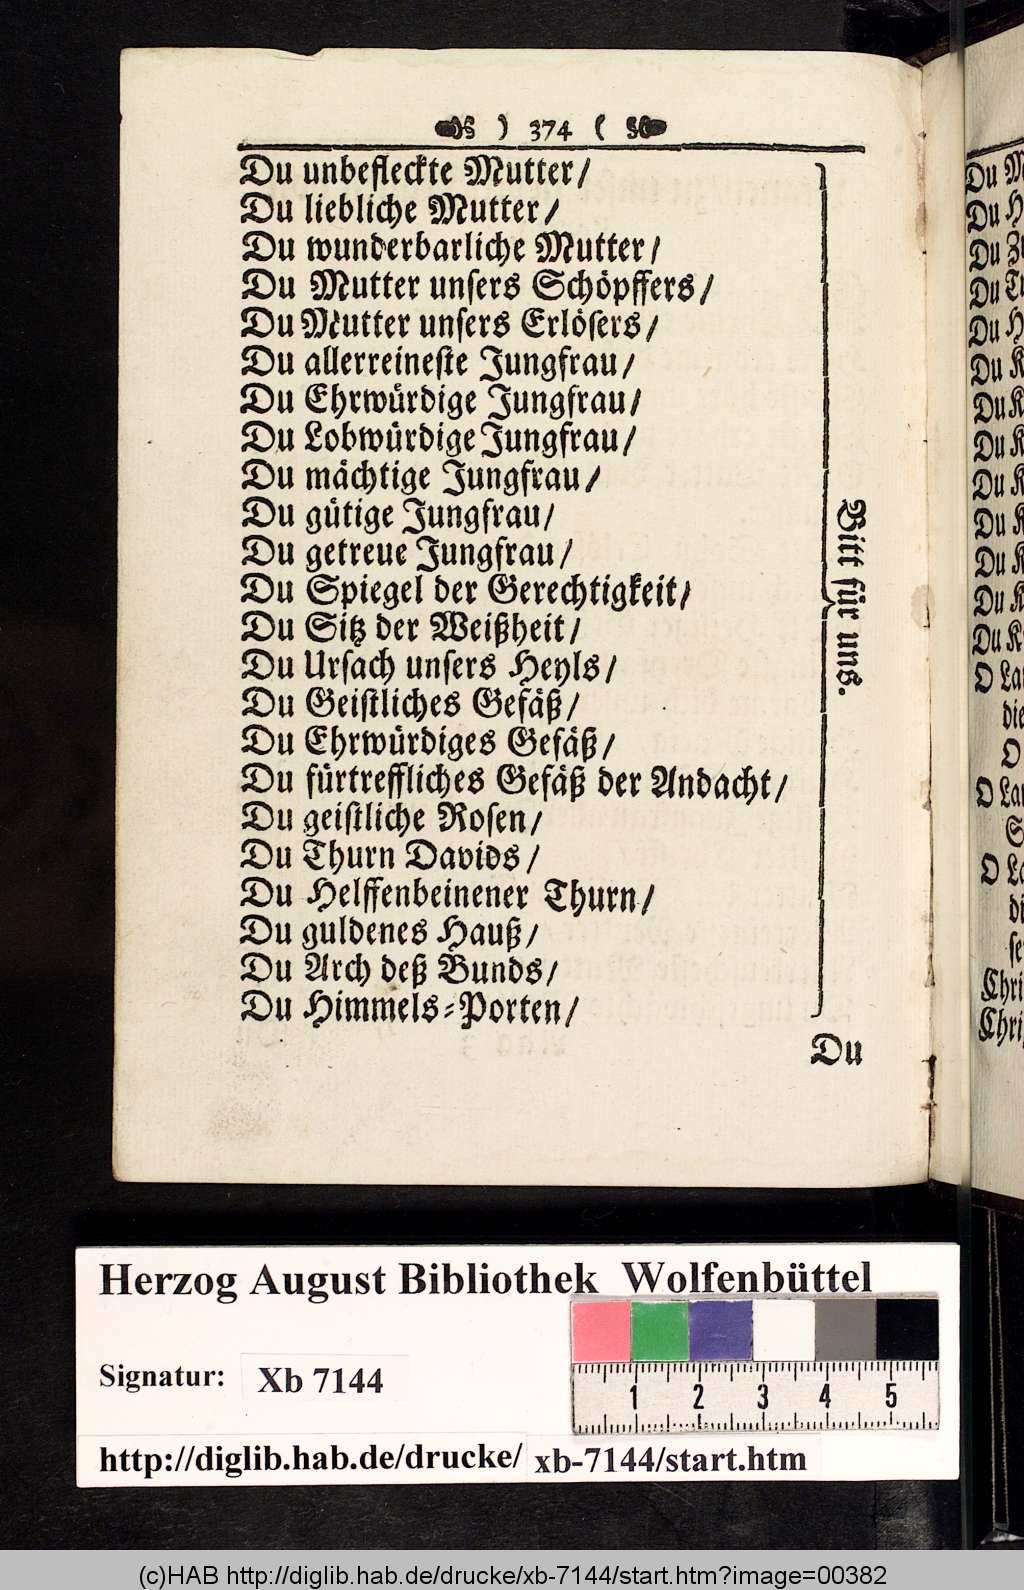 ) 374 (
Du unbefleckte Mutter/
Du liebliche Mutter/
Du wunderbarliche Mutter/
Du Mutter unsers Schöpffers/
Du Mutter unsers Erlösers/
Du allerreineste Jungfrau/
Du Ehrwürdige Jungfrau/
Du Lobwürdige Jungfrau/
Du mächtige Jungfrau/
Du gütige Jungfrau/
Du getreue Jungfrau/
Du Spiegel der Gerechtigkeit/
Du Sitz der Weißheit/
Du Ursach unsers Heyls/
Du Geistliches Gefäß/
Du Ehrwürdiges Gefäß/
Du fürtreffliches Gefäß der Andacht/
Du geistliche Rosen/
Du Thurn Davids/
Du Helffenbeinener Thurn/
Du guldenes Hauß/
Du Arch deß Bunds/
Du Himmels-Porten/
Bitt für uns.
Du
Du
Du
Du
Du
Du
Du
Du
Du
Du
Du
Du
Du
Du
O
die
O
O
O
Herzog August Bibliothek Wolfenbüttel
Signatur: Xb 7144
1 2 3 4 5
http://diglib.hab.de/drucke/ xb-7144/start.htm
(c)HAB http://diglib.hab.de/drucke/xb-7144/start.htm?image=00382